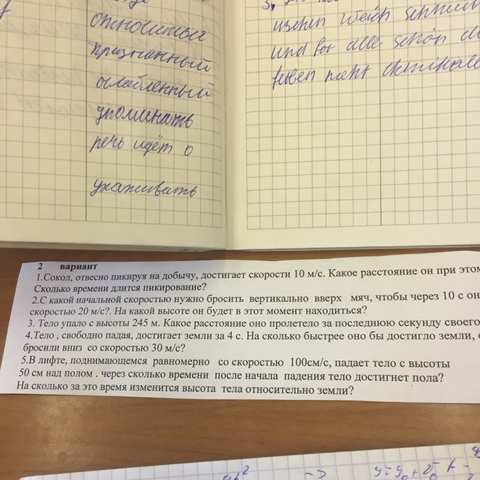 относиться
признанный
ослабленный
упоминать
речь идёт о
ухаживать
und für alle schön
2 вариант
1.Сокол, отвесно пикируя на добычу, достигает скорости 10 м/с. Какое расстояние он при этом
Сколько времени длится пикирование?
2.С какой начальной скоростью нужно бросить вертикально вверх мяч, чтобы через 10 с он
скоростью 20 м/с?. На какой высоте он будет в этот момент находиться?
3. Тело упало с высоты 245 м. Какое расстояние оно пролетело за последнюю секунду своего
4.Тело , свободно падая, достигает земли за 4 с. На сколько быстрее оно бы достигло земли,
бросили вниз со скоростью 30 м/с?
5.В лифте, поднимающемся равномерно со скоростью 100см/с, падает тело с высоты
50 см над полом . через сколько времени после начала падения тело достигнет пола?
На сколько за это время изменится высота тела относительно земли?